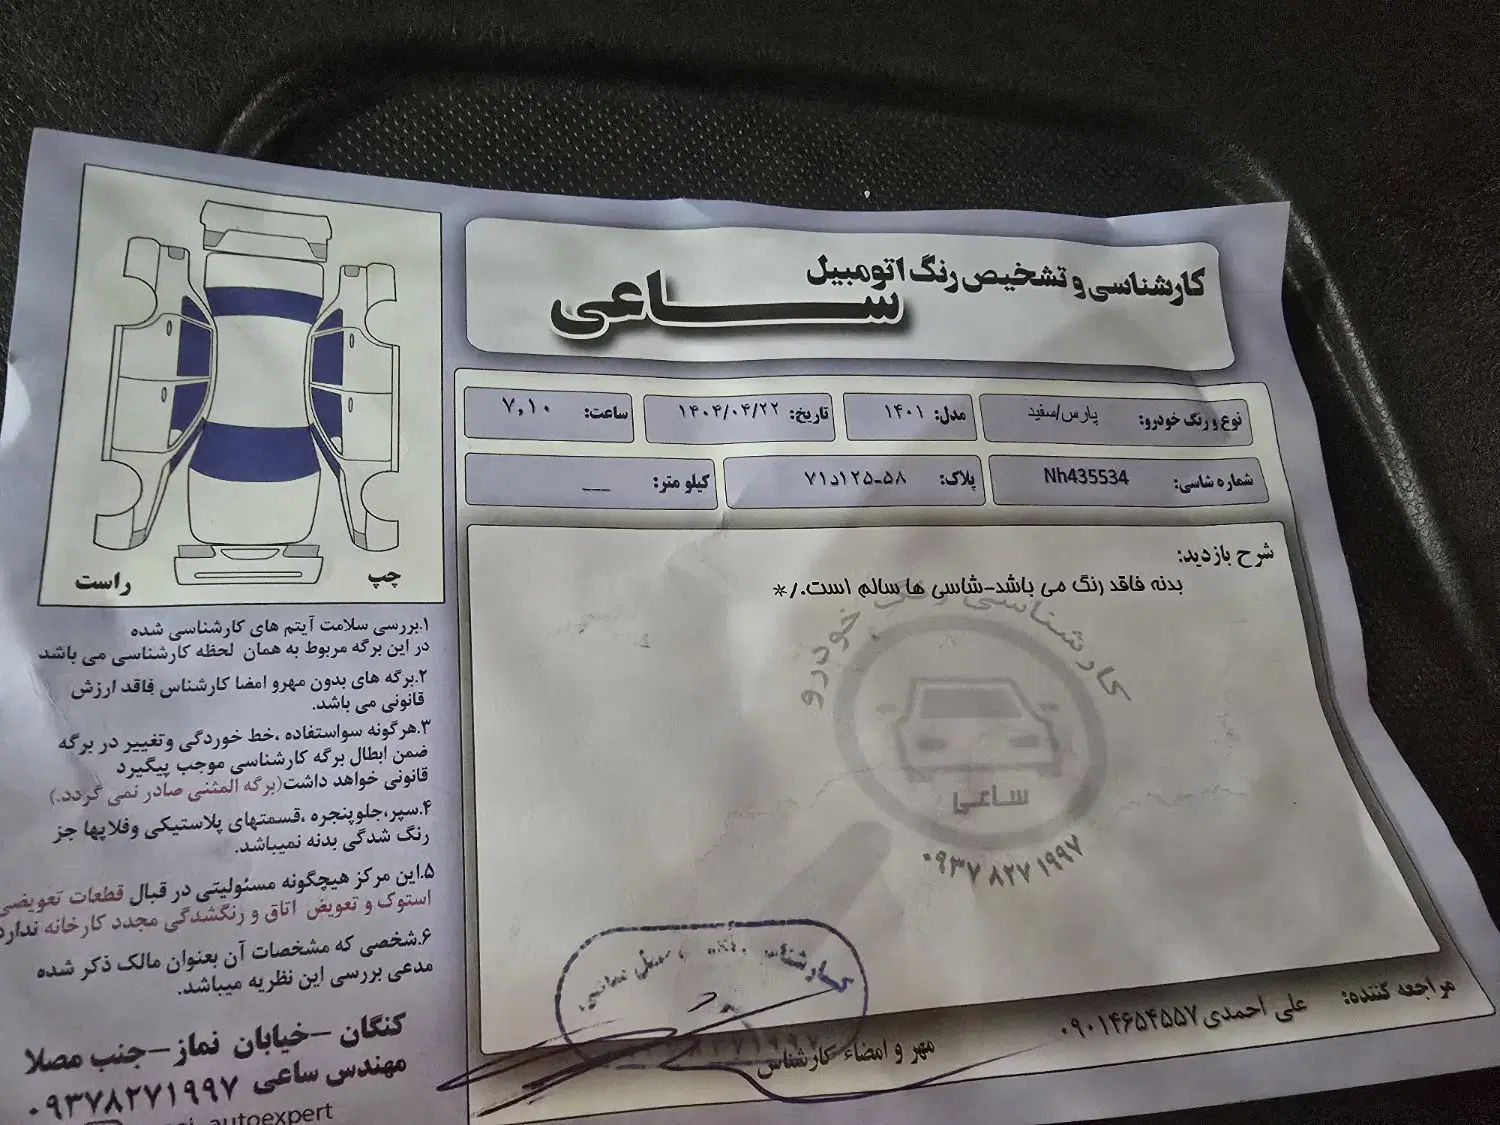 کارشناسی و تشخیص رنگ اتومبیل
ساعی
نوع و رنگ خودرو: پارس/سفید
مدل: ۱۴۰۱
تاریخ: ۱۴۰۴/۰۴/۲۲
ساعت: ۷,۱۰
شماره شاسی: Nh435534
پلاک: ۵۸-۱۲۵د۷۱
کیلو متر: ___
شرح بازدید:
بدنه فاقد رنگ می باشد-شاسی ها سالم است./*
کارشناسی فنی خودرو
ساعی
۰۹۳۷۸۲۷۱۹۹۷
مراجعه کننده: علی احمدی ۰۹۰۱۴۶۵۴۵۵۷
مهر و امضاء کارشناس
راست
چپ
۱.بررسی سلامت آیتم های کارشناسی شده
در این برگه مربوط به همان لحظه کارشناسی می باشد
۲.برگه های بدون مهرو امضا کارشناس فاقد ارزش
قانونی می باشد.
۳.هرگونه سواستفاده ،خط خوردگی وتغییر در برگه
ضمن ابطال برگه کارشناسی موجب پیگیرد
قانونی خواهد داشت(برگه المثنی صادر نمی گردد.)
۴.سپر،جلوپنجره ،قسمتهای پلاستیکی وفلاپها جز
رنگ شدگی بدنه نمیباشد.
۵.این مرکز هیچگونه مسئولیتی در قبال قطعات تعویضی
استوک و تعویض اتاق و رنگشدگی مجدد کارخانه ندارد
۶.شخصی که مشخصات آن بعنوان مالک ذکر شده
مدعی بررسی این نظریه میباشد.
کنگان -خیابان نماز-جنب مصلا
مهندس ساعی ۰۹۳۷۸۲۷۱۹۹۷
autoexpert